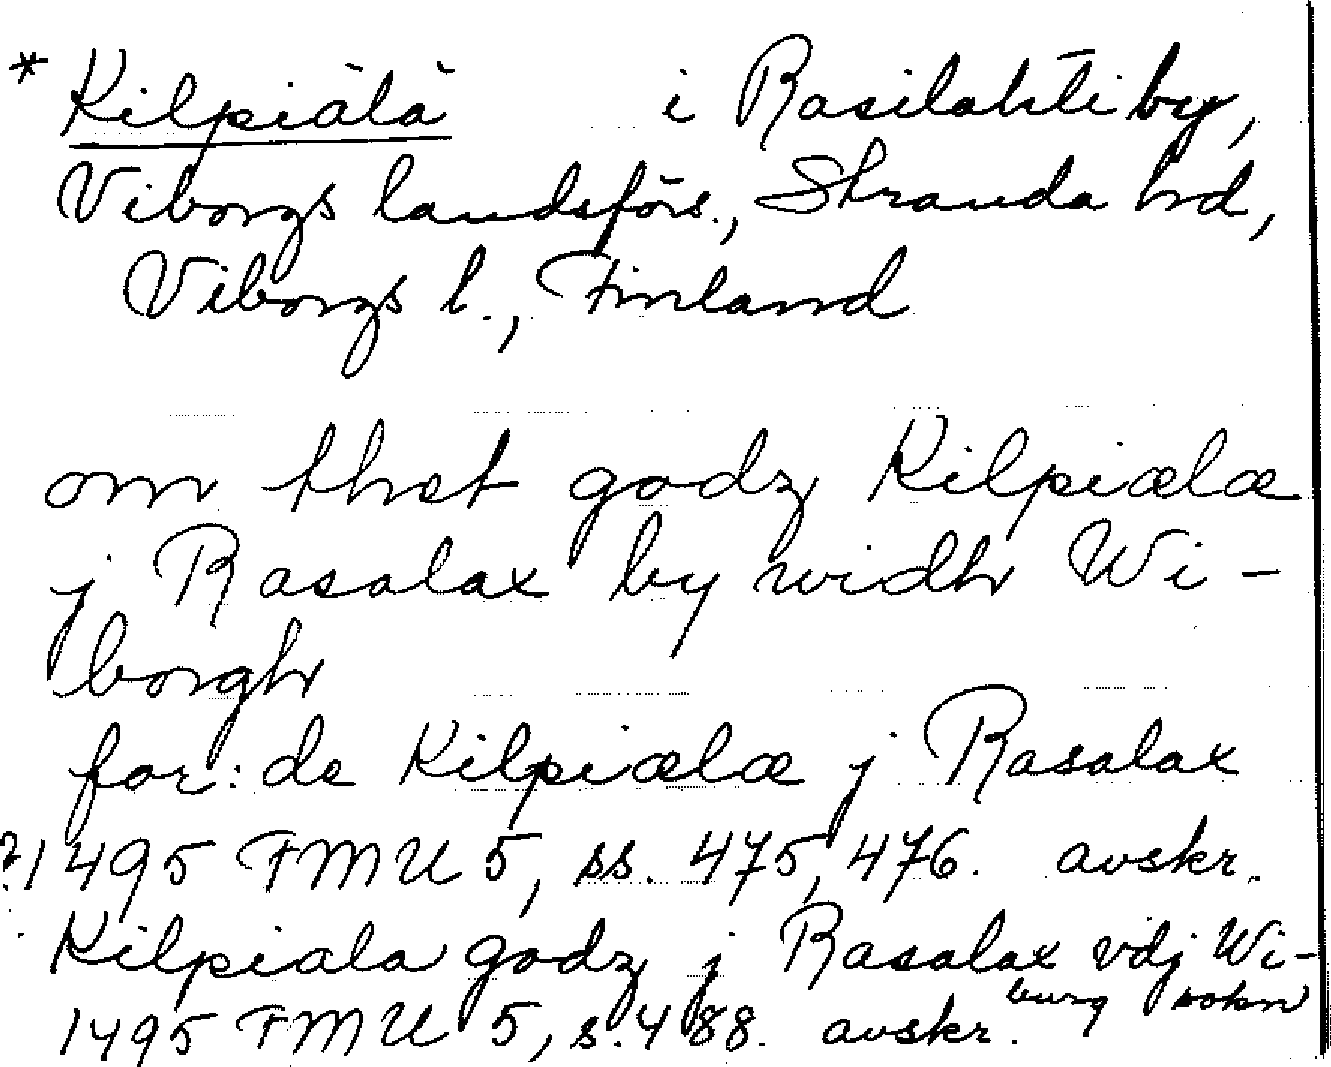 * Kilpiälä i Rasilahti by,
Viborgs landsförs., Stranda hd,
Viborgs l., Finland
om thet godz Kilpiælæ
j Rasalax by widh Wi-
borgh
for: de Kilpiælæ j Rasalax
?1495 FMU 5, ss. 475, 476. avskr.
Kilpiala godz j Rasalax vdj Wi-
burg sokn
1495 FMU 5, s. 488. avskr.